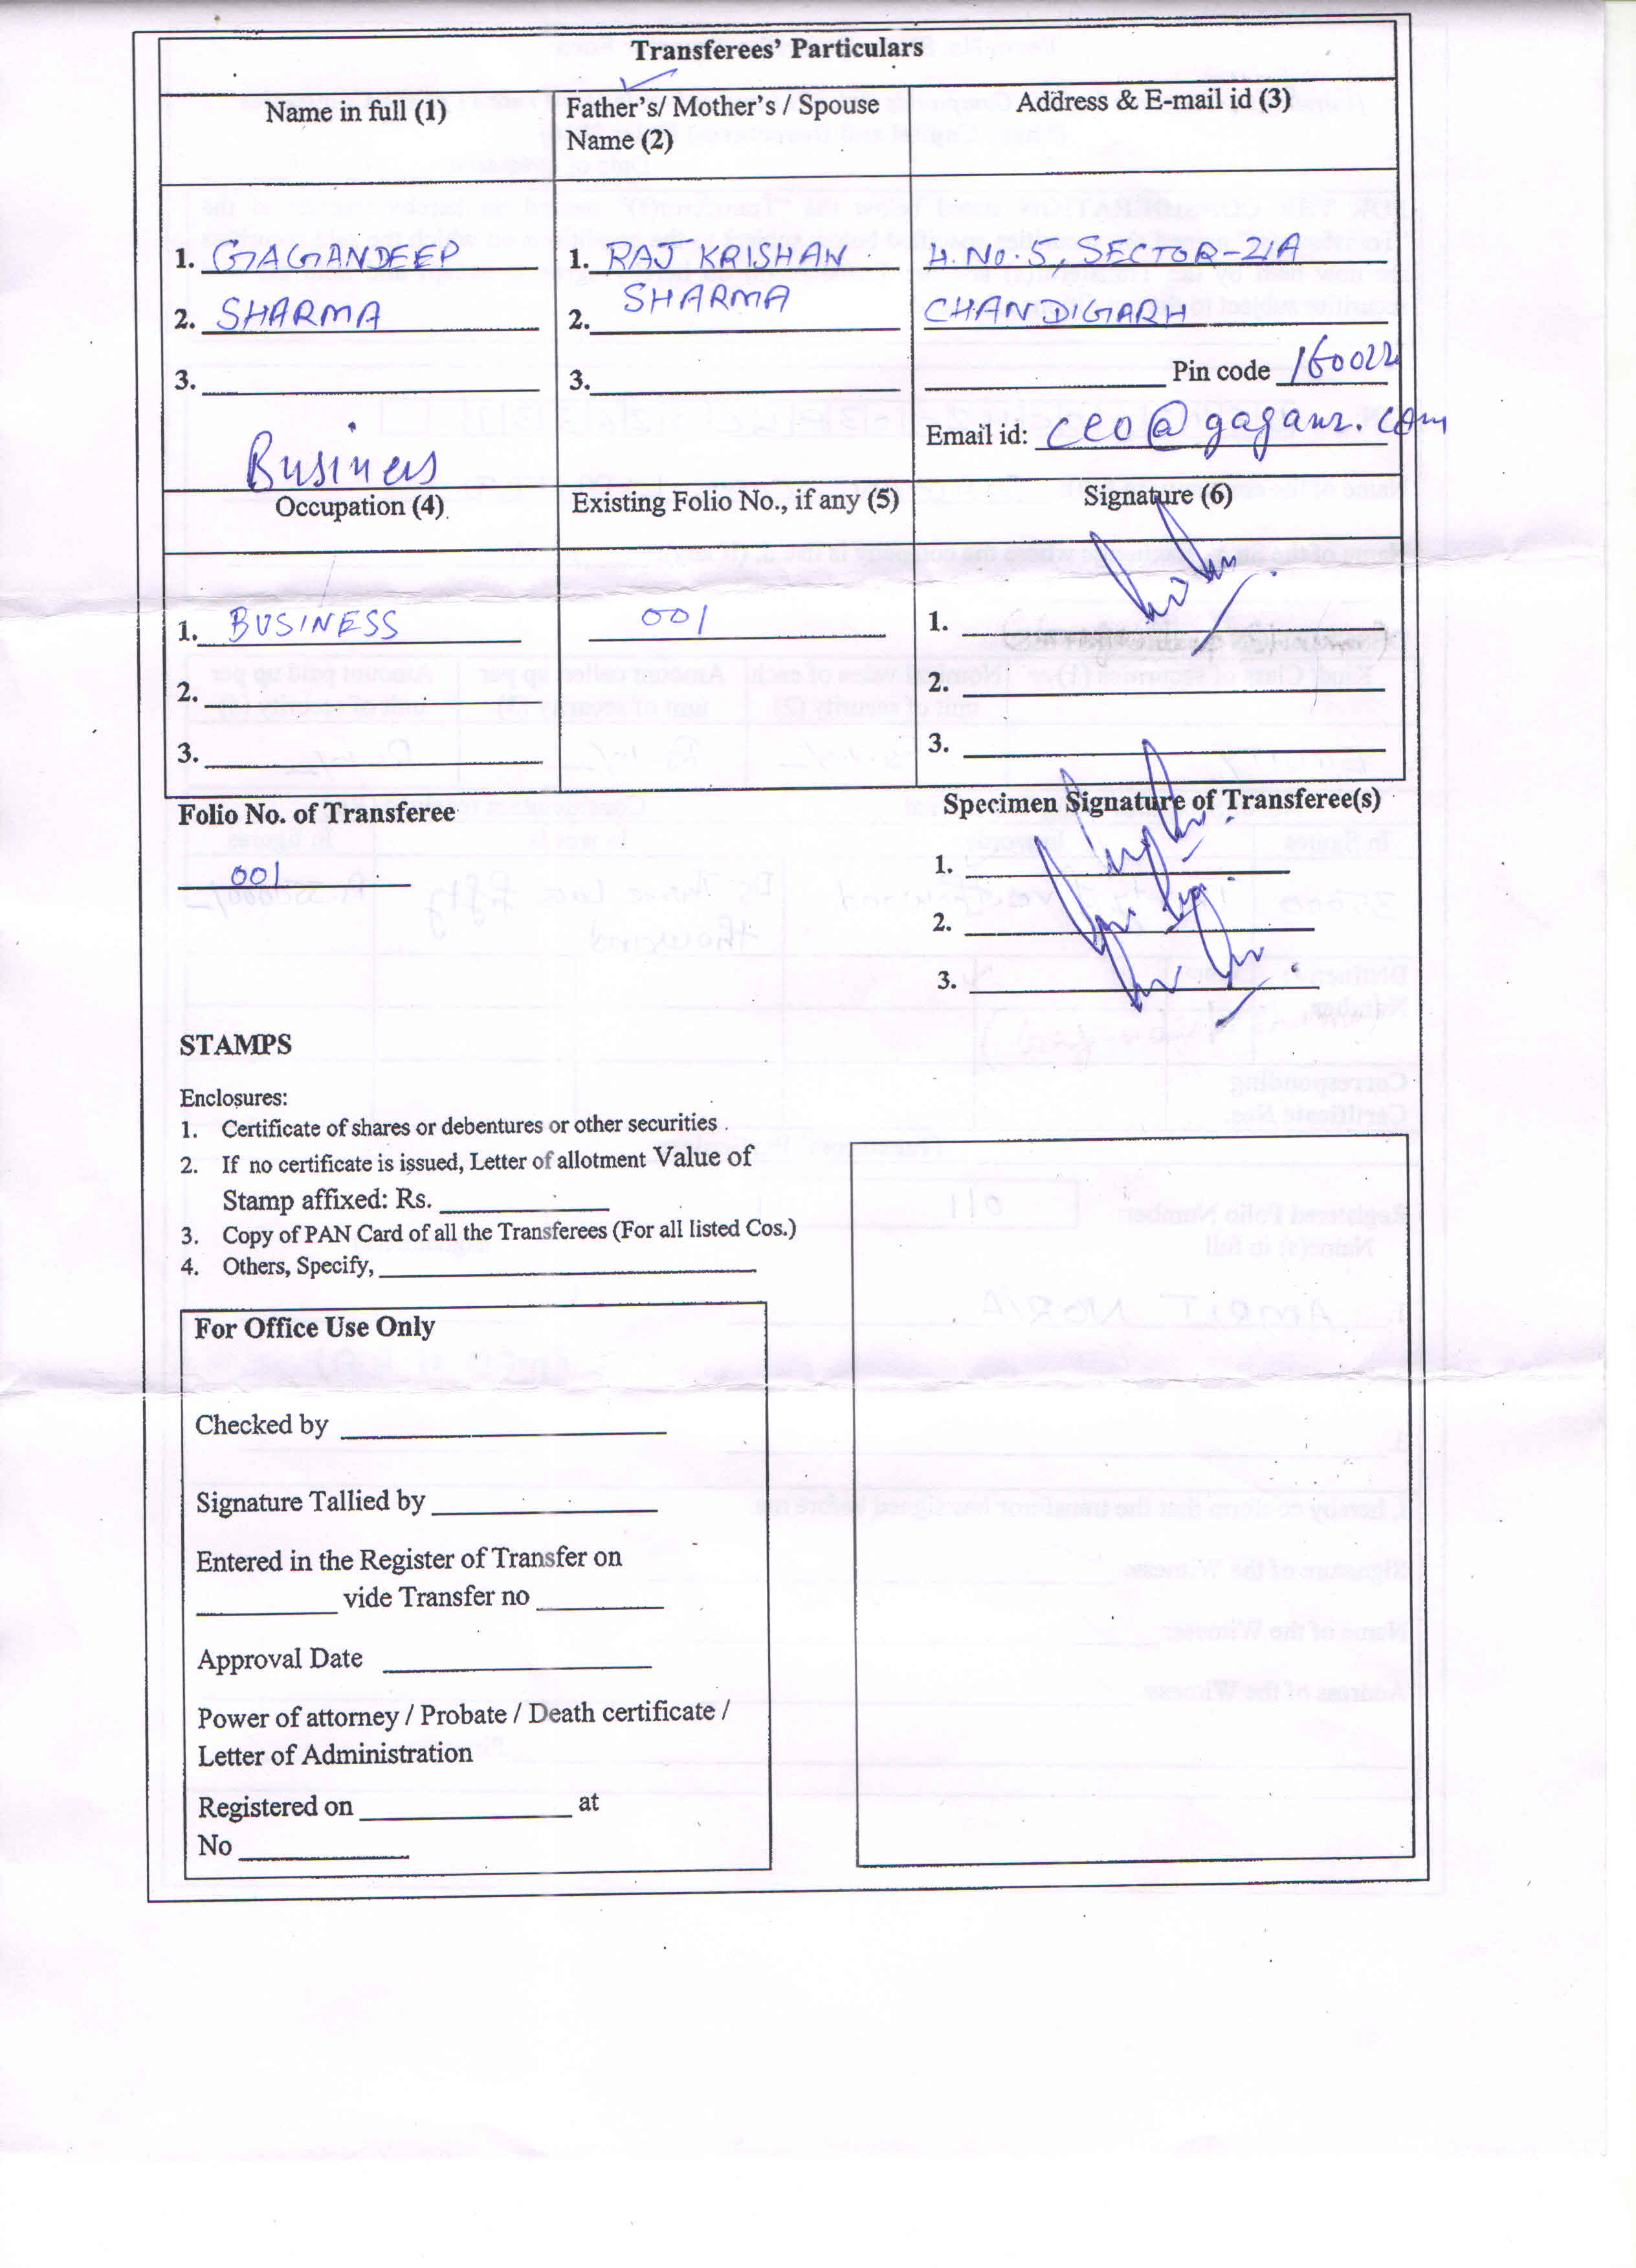 Transferees' Particulars
Name in full (1)
Father's/ Mother's / Spouse
Name (2)
Address & E-mail id (3)
1. GAGANDEEP
2. SHARMA
3.
1. RAJ KRISHAN
SHARMA
2.
3.
H.No. 5, SECTOR-21A
CHANDIGARH
Pin code 160022
Email id:
Business
Occupation (4)
Existing Folio No., if any (5)
Signature (6)
1. BUSINESS
2.
3.
001
1.
2.
3.
Folio No. of Transferee
001
Specimen Signature of Transferee(s)
1.
2.
3.
STAMPS
Enclosures:
1. Certificate of shares or debentures or other securities
2. If no certificate is issued, Letter of allotment Value of
Stamp affixed: Rs.
3. Copy of PAN Card of all the Transferees (For all listed Cos.)
4. Others, Specify,
For Office Use Only
Checked by
Signature Tallied by
Entered in the Register of Transfer on
vide Transfer no
Approval Date
Power of attorney / Probate / Death certificate /
Letter of Administration
Registered on at
No